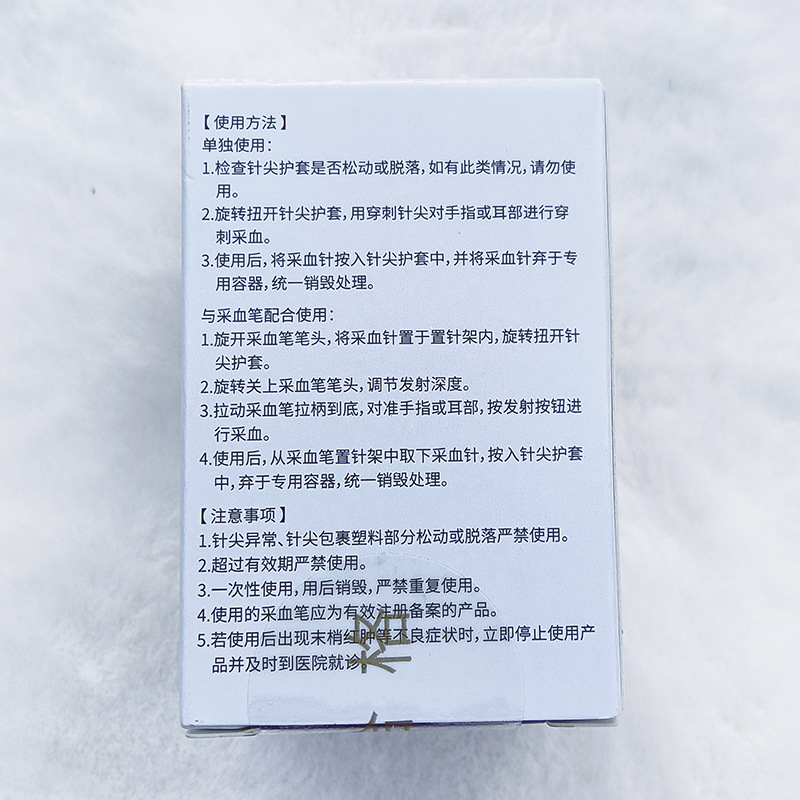 【使用方法】
单独使用：
1.检查针尖护套是否松动或脱落，如有此类情况，请勿使
用。
2.旋转扭开针尖护套，用穿刺针尖对手指或耳部进行穿
刺采血。
3.使用后，将采血针按入针尖护套中，并将采血针弃于专
用容器，统一销毁处理。
与采血笔配合使用：
1.旋开采血笔笔头，将采血针置于置针架内，旋转扭开针
尖护套。
2.旋转关上采血笔笔头，调节发射深度。
3.拉动采血笔拉柄到底，对准手指或耳部，按发射按钮进
行采血。
4.使用后，从采血笔置针架中取下采血针，按入针尖护套
中，弃于专用容器，统一销毁处理。
【注意事项】
1.针尖异常、针尖包裹塑料部分松动或脱落严禁使用。
2.超过有效期严禁使用。
3.一次性使用，用后销毁，严禁重复使用。
4.使用的采血笔应为有效注册备案的产品。
5.若使用后出现末梢红肿等不良症状时，立即停止使用产
品并及时到医院就诊。
格